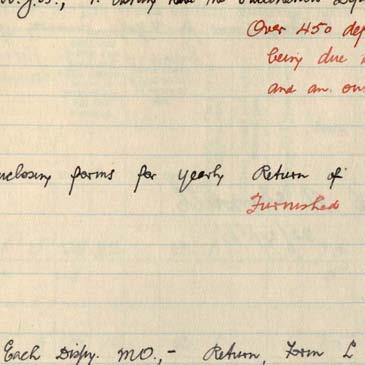 Over 450 dep
being due
and an ou
nclosing forms for yearly Return of
Furnished
Each Dispy. M.O.,- Return, Form L